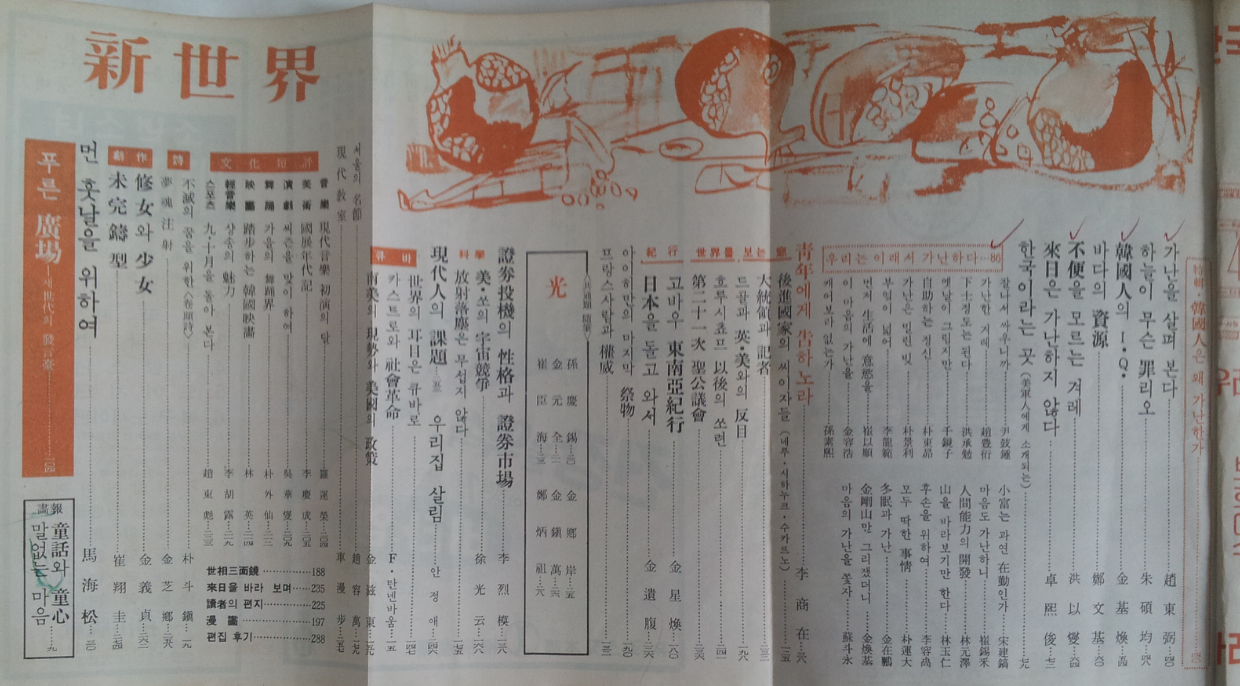 新世界
特輯 韓國人은 왜 가난한가
가난을 살펴 본다 趙東弼
하늘이 무슨 罪리오 朱碩均
韓國人의 I·Q· 金基煥
바다의 資源 鄭文基
不便을 모르는 겨레 洪以燮
來日은 가난하지 않다 卓熙俊
한국이라는 곳 (美軍人에게 소개되는)
우리는 이래서 가난하다 86
잘나서 싸우니까 尹鼓鍾
가난한 겨레 趙豊衍
下士정도는 된다 洪承勉
옛날이 그립지만 千鏡子
自助하는 정신 朴東昻
가난은 밀린 빚 朴景利
부엌이 넓어 李龍範
먼저 生活에 意慾을 崔以順
이 마음의 가난을 金容浩
캐어보라 없는가 孫素熙
小富는 과연 在勤인가 宋建鎬
마음도 가난하니 崔錫采
人間能力의 開發 林元澤
山을 바라보기만 한다 林玉仁
후손을 위하여 李容卨
모두 딱한 事情 朴運大
冬眠과 가난 金在鵬
金剛山만 그리겠더니 金煥基
마음의 가난을 쫓자 蘇斗永
靑年에게 告하노라 李商在
後進國家의 씨이자들 (네루·시하누크·수카르노)
世界를 보는 窓
大統領과 記者
드골과 英·美와의 反目
흐루시쵸프 以後의 쏘련
第二十一次 聖公議會
紀行
고바우 東南亞紀行 金星煥
日本을 돌고 와서 金遺腹
아이히만의 마지막 祭物
프랑스사람과 權威
光
孫慶錫 金鄕岸
金元全 金鎭萬
崔臣海 鄭炳祖
證券投機의 性格과 證券市場 李烈模
科學
美·쏘의 宇宙競爭 徐光云
放射落塵은 무섭지 않다
現代人의 課題 우리집 살림 안정애
큐바
世界의 耳目은 큐바로
카스트로와 社會革命 F·만넨바움
南美의 現勢와 美國의 政策 金滋東
서울의 名節 趙容萬
現代敎室 車漫步
文化短評
音樂 現代音樂 初演의 달 羅運榮
美術 國展年代記 李慶成
演劇 씨즌을 맞이하여 吳華燮
舞踊 가을의 舞踊界 朴外仙
映畵 踏步하는 韓國映畵 林英
輕音樂 샹송의 魅力 李胡露
스포츠 九·十月을 돌아 본다 趙東彪
詩
不滅의 꿈을 위한 (卷頭詩) 朴斗鎭
夢魂注射 金芝鄕
創作
修女와 少女 金義貞
未完鑄型 崔翔圭
먼 훗날을 위하여 馬海松
푸른 廣場 새世代의 發言臺
世相三面鏡 188
來日을 바라 보며 235
讀者의 편지 225
漫畵 197
편집 후기 288
畵報
童話와 童心
말없는 마음